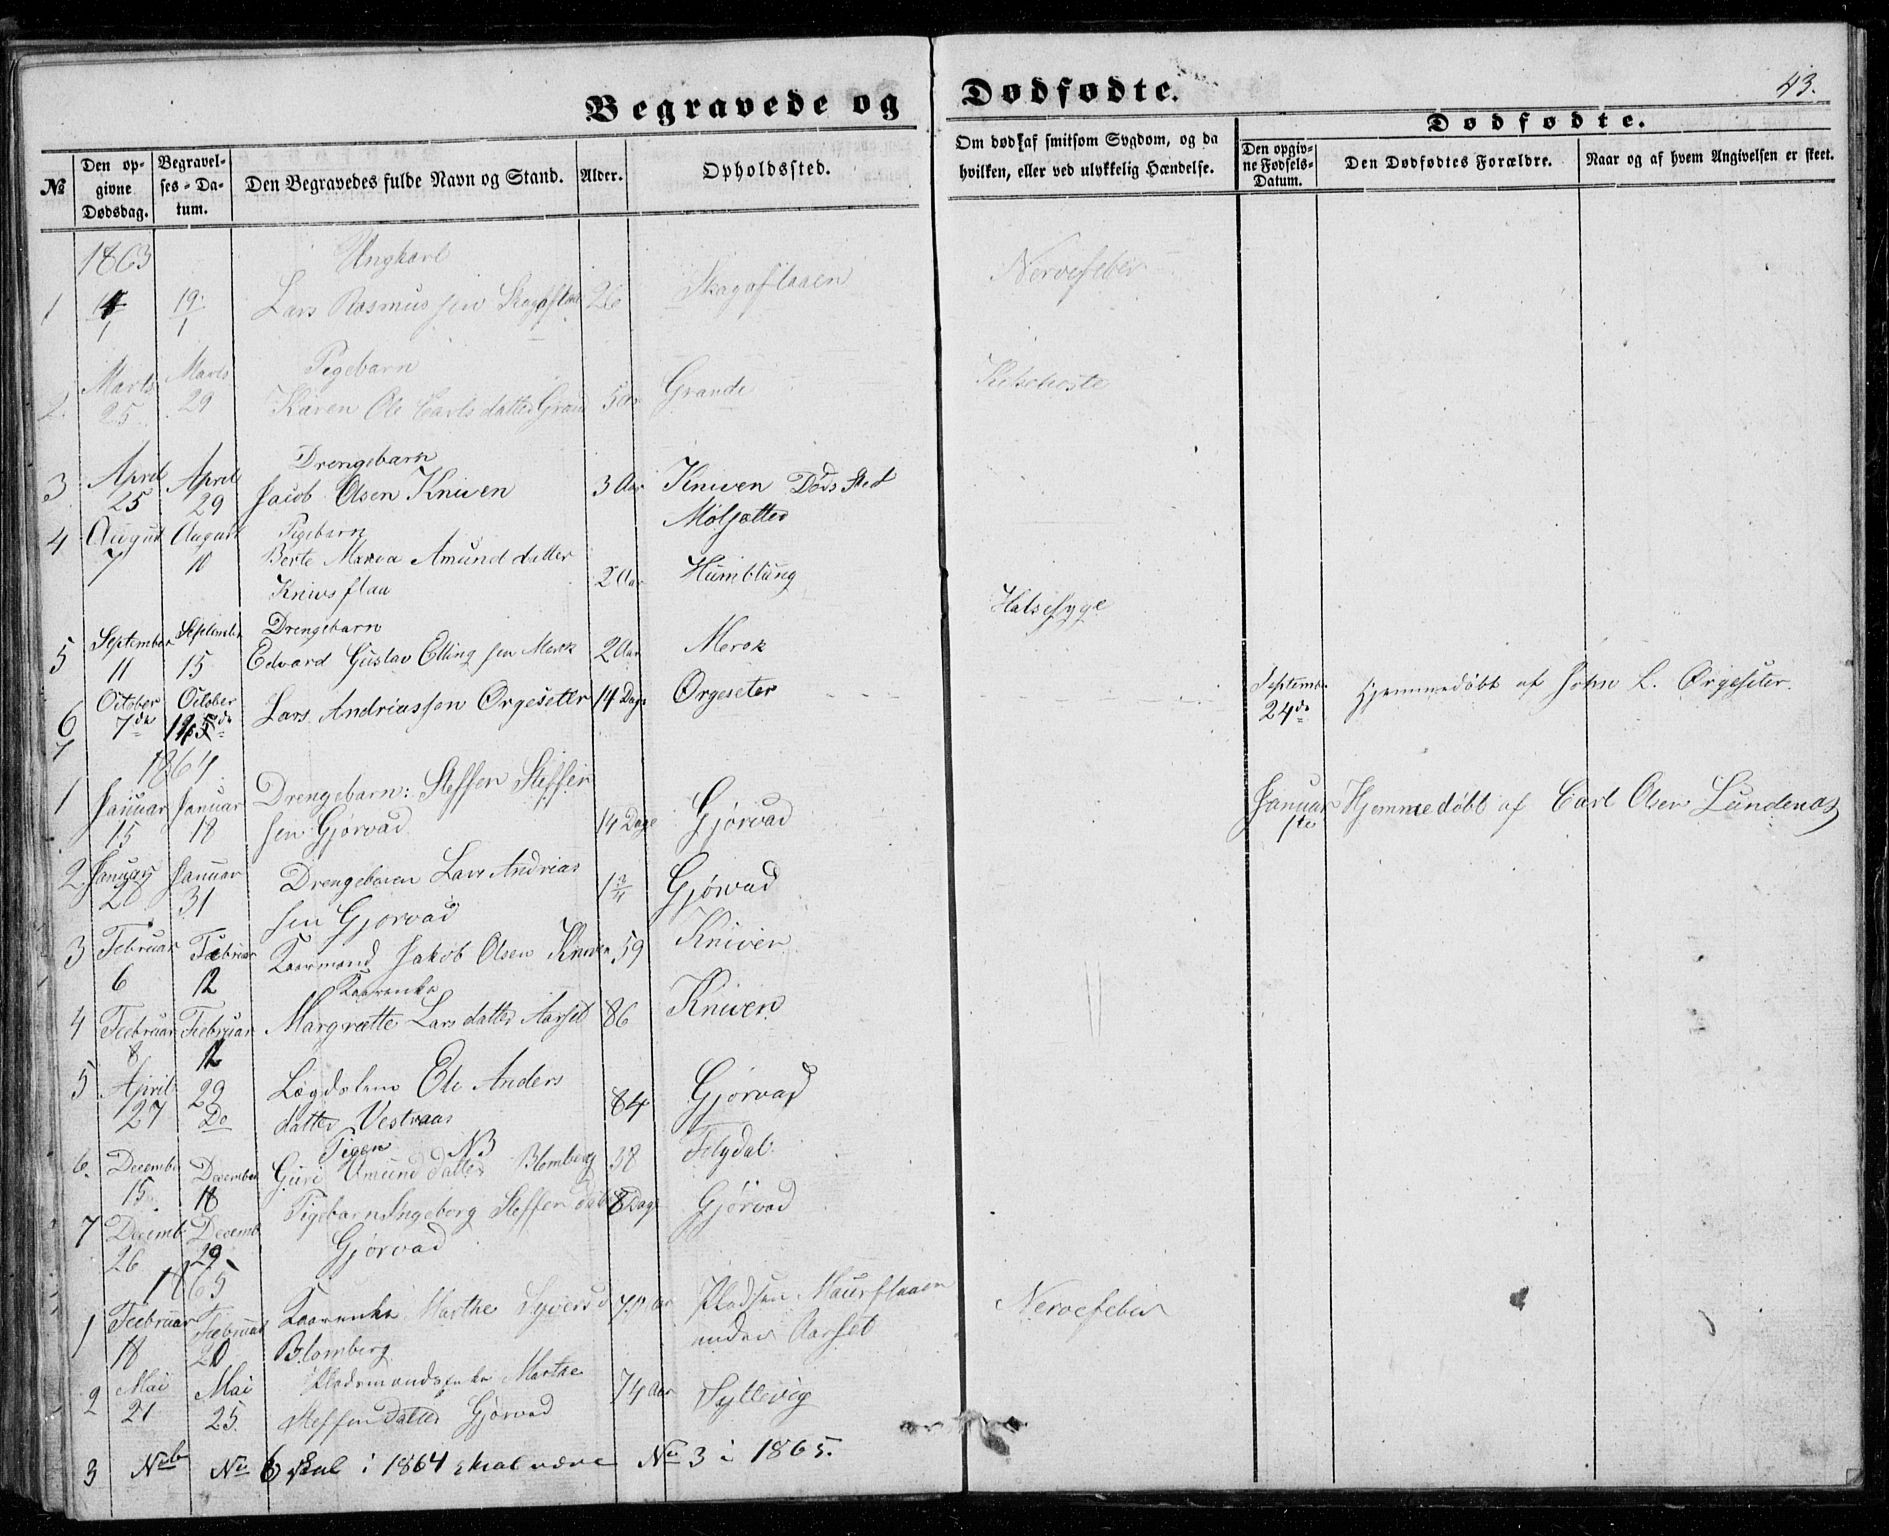 Begravede og Dødfødte.
43.
№
Den opgivne Dødsdag.
Begravelses-Datum.
Den Begravedes fulde Navn og Stand.
Alder.
Opholdssted.
Om død af smitsom Sygdom, og da hvilken, eller ved ulykkelig Hændelse.
Dødfødte.
Den opgivne Fødsels-Datum.
Den Dødfødtes Forældre.
Naar og af hvem Angivelsen er skeet.
1863
Ungkarl
1 19/1 Lars Rasmussen Skagaflaa 26 Skagaflaaen Nervefeber
Pigebarn
2. Marts 25 Marts 29 Karen Ole Carls datter Grand 5 Aar Grande Kighoste
Drengebarn
3 April 25 April 29 Jacob Olsen Kniven 3 Aar Kniven Døds Sted
Molsætter
4 August 7 August 10 Pigebarn
Berte Maria Amunddatter
Knivsflaa 2 Aar Humblung
Halssyge
5 September 11 September 15 Drengebarn
Edvard Gustav Ellingsen Merok 2 Aar Merok
6 October 7de October Lars Andriassen Ørgeseter 14 Dage Ørgeseter Septemb. 24de Hjemmedøbt af John L. Ørgeseter.
7
1864
1 Januar 15 Januar 18 Drengebarn: Steffen Steffen
sen Gjørvad 14 Dage Gjørvad Januar 1te Hjemmedøbt af Carl Olsen Lundenæs
2 Januar 20 Januar 31 Drengebaren Lars Andrias
sen Gjørvad 1 3/4 Gjørvad
3 Februar 6 Februar 12 Kaarmand Jakob Olsen Kniven 59 Kniven
Kaarenke
4 Februar 8 Februar 12 Margrette Lars datter Aarset 86 Kniven
5 April 27 29 Do Lægdslem Ele Anders
datter Vestraas 84 Gjørvad
Pigen NB
6. Decembe 15 December 18 Guri Amund datter Blomberg 38 Felydal.
7 Decemb. 26 Decemb 29 Pigebarn Ingeborg Steffen dat 8 Dage Gjørvad
Gjørvad
1865
1 Februar 18 Februar 20 Kaarenke Marthe Syversd Aar Pladsen Maurflaaen
Blomberg under Aarset Nervefeber
2 Mai 21 Mai 25. Pladsmandsenke Marthe
Steffendatter Gjørvad 74 Aar Syltevig
3 Nb No 6 i 1864 skal være No 3 i 1865.